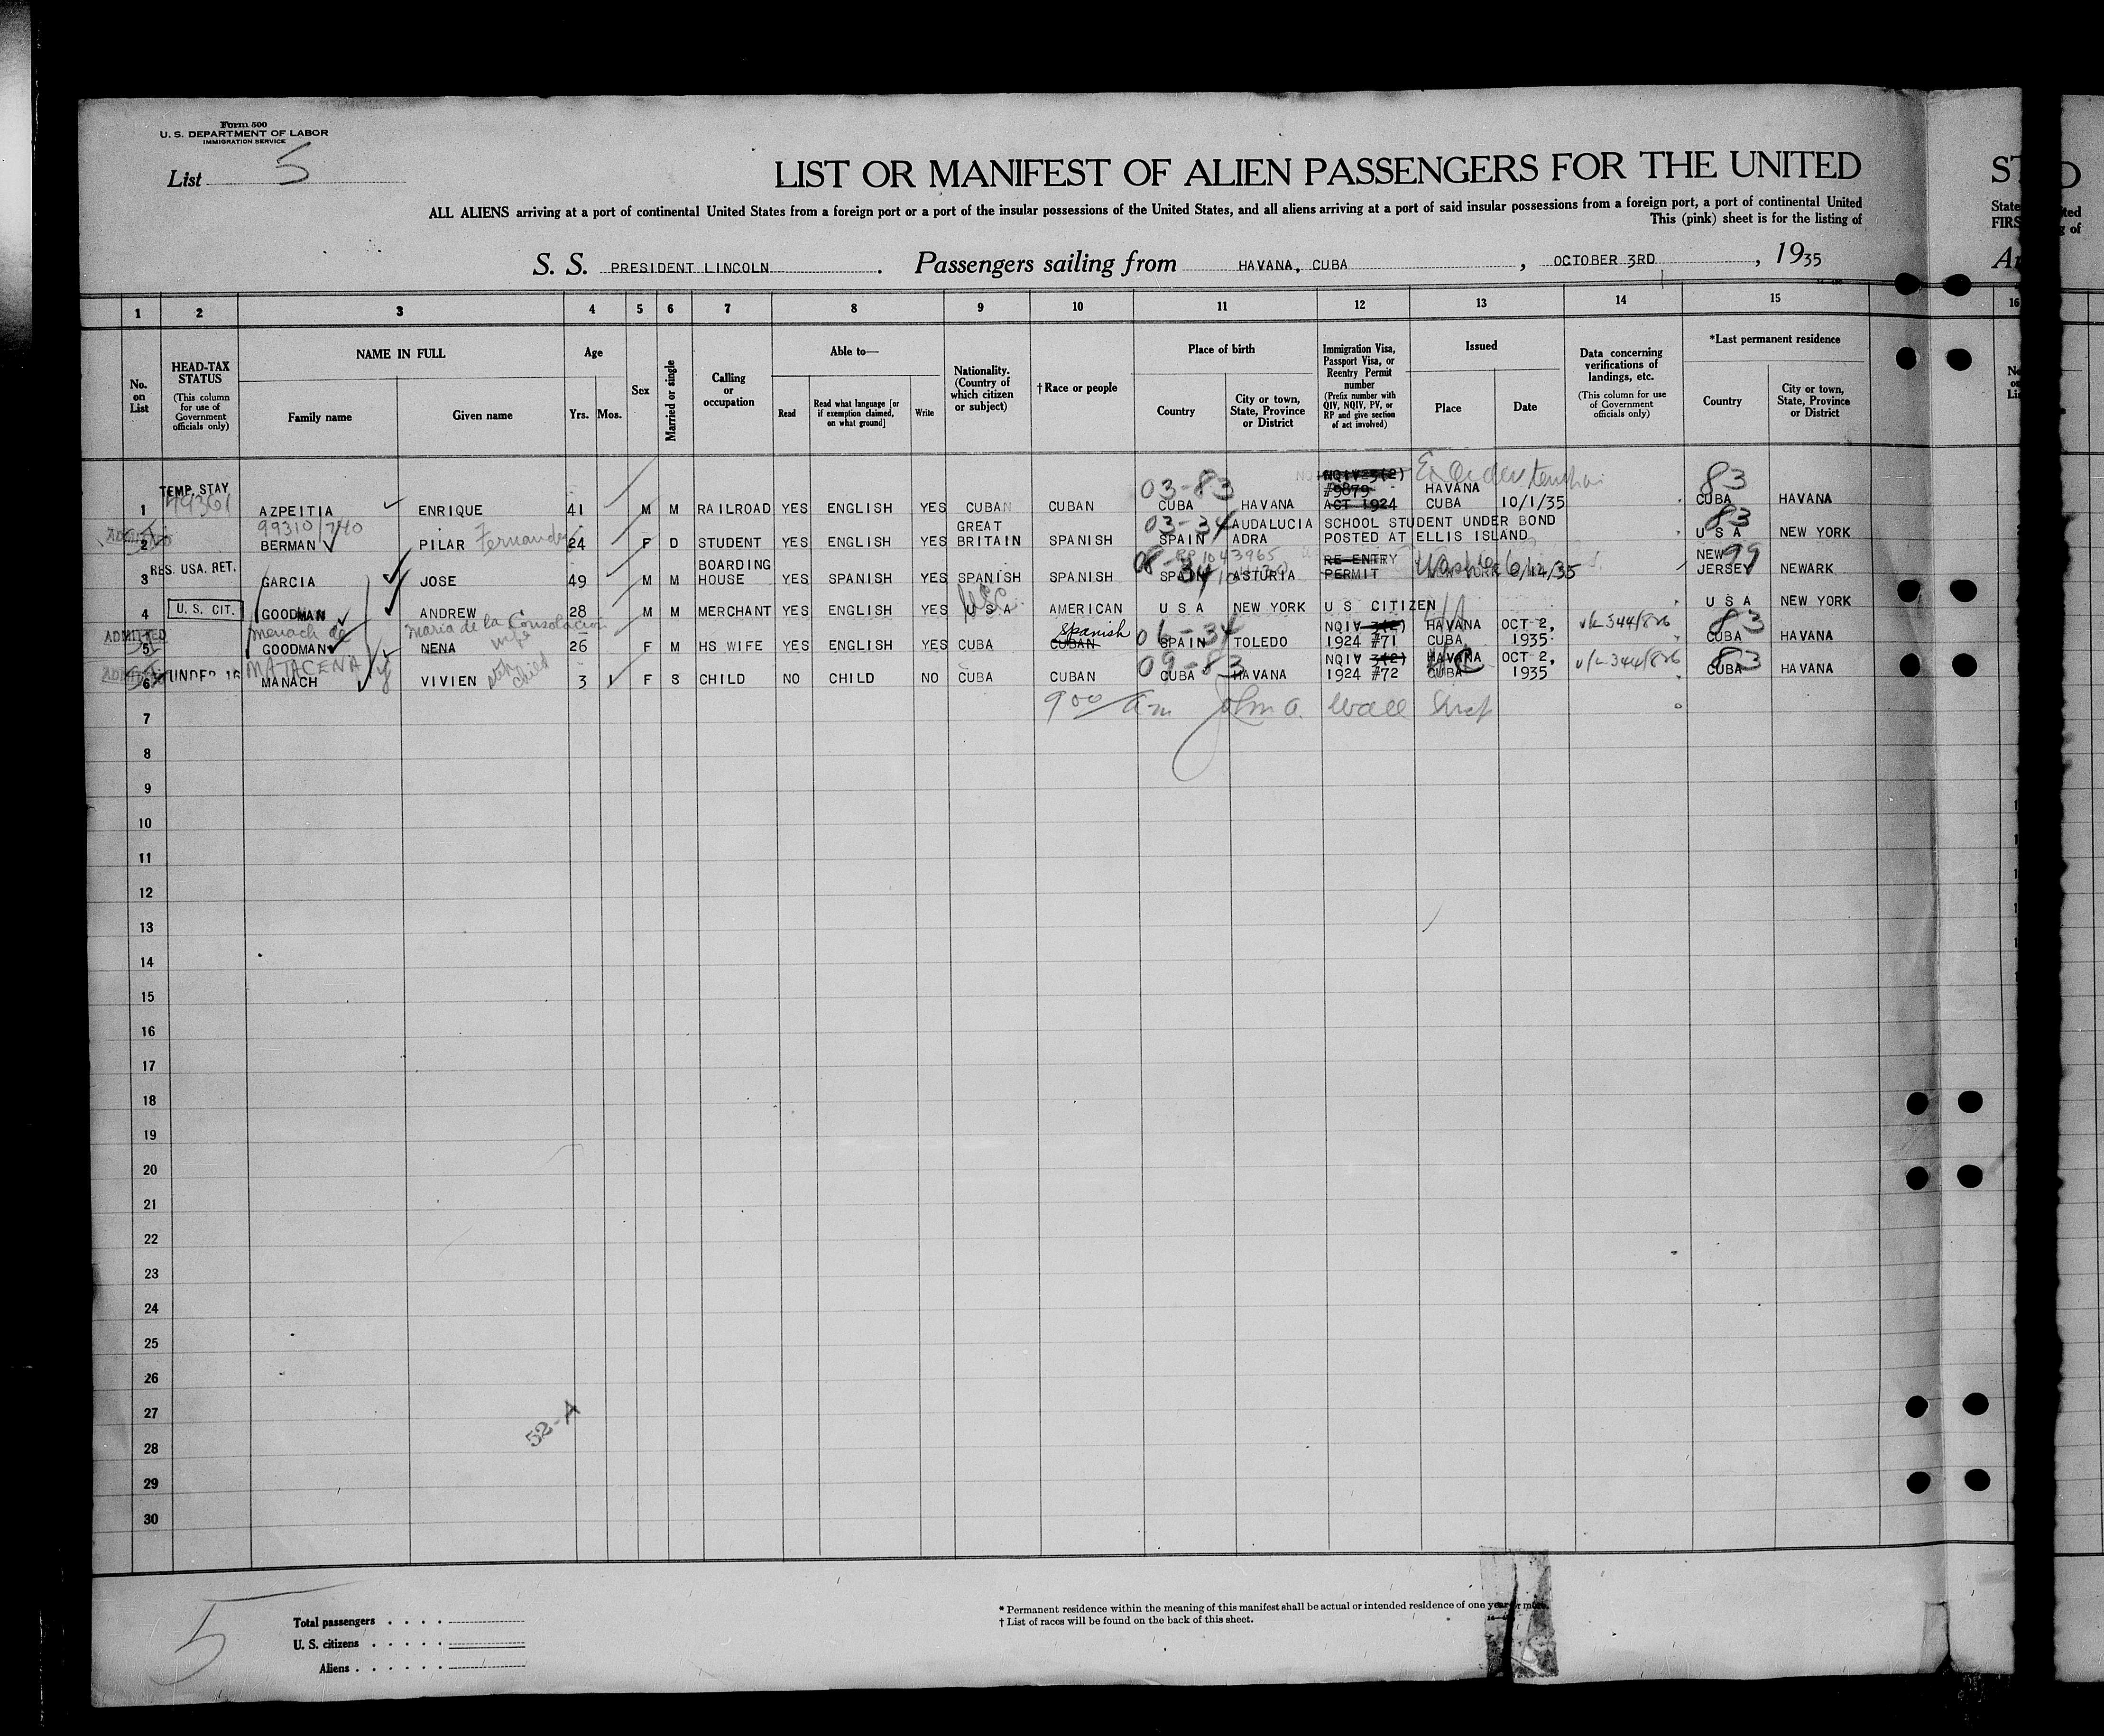 Form 500
U. S. DEPARTMENT OF LABOR
IMMIGRATION SERVICE
List 5
LIST OR MANIFEST OF ALIEN PASSENGERS FOR THE UNITED
ALL ALIENS arriving at a port of continental United States from a foreign port or a port of the insular possessions of the United States, and all aliens arriving at a port of said insular possessions from a foreign port, a port of continental United
This (pink) sheet is for the listing of
S. S. PRESIDENT LINCOLN. Passengers sailing from HAVANA, CUBA, OCTOBER 3RD, 1935
1 2 3 4 5 6 7 8 9 10 11 12 13 14 15 16
No. on List
HEAD-TAX STATUS (This column for use of Government officials only)
NAME IN FULL Family name Given name
Age Yrs. Mos.
Sex
Married or single
Calling or occupation
Able to— Read Read what language [or if exemption claimed, on what ground] Write
Nationality. (Country of which citizen or subject)
† Race or people
Place of birth Country City or town, State, Province or District
Immigration Visa, Passport Visa, or Reentry Permit number (Prefix number with QIV, NQIV, PV, or RP and give section of act involved)
Issued Place Date
Data concerning verifications of landings, etc. (This column for use of Government officials only)
*Last permanent residence Country City or town, State, Province or District
TEMP. STAY 03-83 NQIV 3(2) #9879 83
1 AZPEITIA ENRIQUE 41 M M RAILROAD YES ENGLISH YES CUBAN CUBAN CUBA HAVANA ACT 1924 HAVANA CUBA 10/1/35 CUBA HAVANA
99310/740 03-34 83
2 BERMAN PILAR Fernandez 24 F D STUDENT YES ENGLISH YES GREAT BRITAIN SPANISH SPAIN AUDALUCIA ADRA SCHOOL STUDENT UNDER BOND POSTED AT ELLIS ISLAND U S A NEW YORK
RES. USA. RET. 08-34 99
3 GARCIA JOSE 49 M M BOARDING HOUSE YES SPANISH YES SPANISH SPANISH SPAIN ASTURIA RE-ENTRY PERMIT 6/14/35 NEW JERSEY NEWARK
U. S. CIT. USC
4 GOODMAN ANDREW 28 M M MERCHANT YES ENGLISH YES U S A AMERICAN U S A NEW YORK U S CITIZEN U S A NEW YORK
ADMITTED Menach de Maria de la Consolacion wife Spanish 06-34 83
5 GOODMAN NENA 26 F M HS WIFE YES ENGLISH YES CUBA CUBAN SPAIN TOLEDO NQIV 3(2) 1924 #71 HAVANA CUBA, OCT 2, 1935 v/L 344/826 CUBA HAVANA
UNDER 16 MATACENA child 09-83 83
6 MANACH VIVIEN 3 1 F S CHILD NO CHILD NO CUBA CUBAN CUBA HAVANA NQIV 3(2) 1924 #72 HAVANA CUBA OCT 2, 1935 v/L 344/826 CUBA HAVANA
7 9 00/am John A. Wall
8
9
10
11
12
13
14
15
16
17
18
19
20
21
22
23
24
25
26
27
28
29
30
52-A
5
Total passengers
U. S. citizens
Aliens
* Permanent residence within the meaning of this manifest shall be actual or intended residence of one year or more.
† List of races will be found on the back of this sheet.